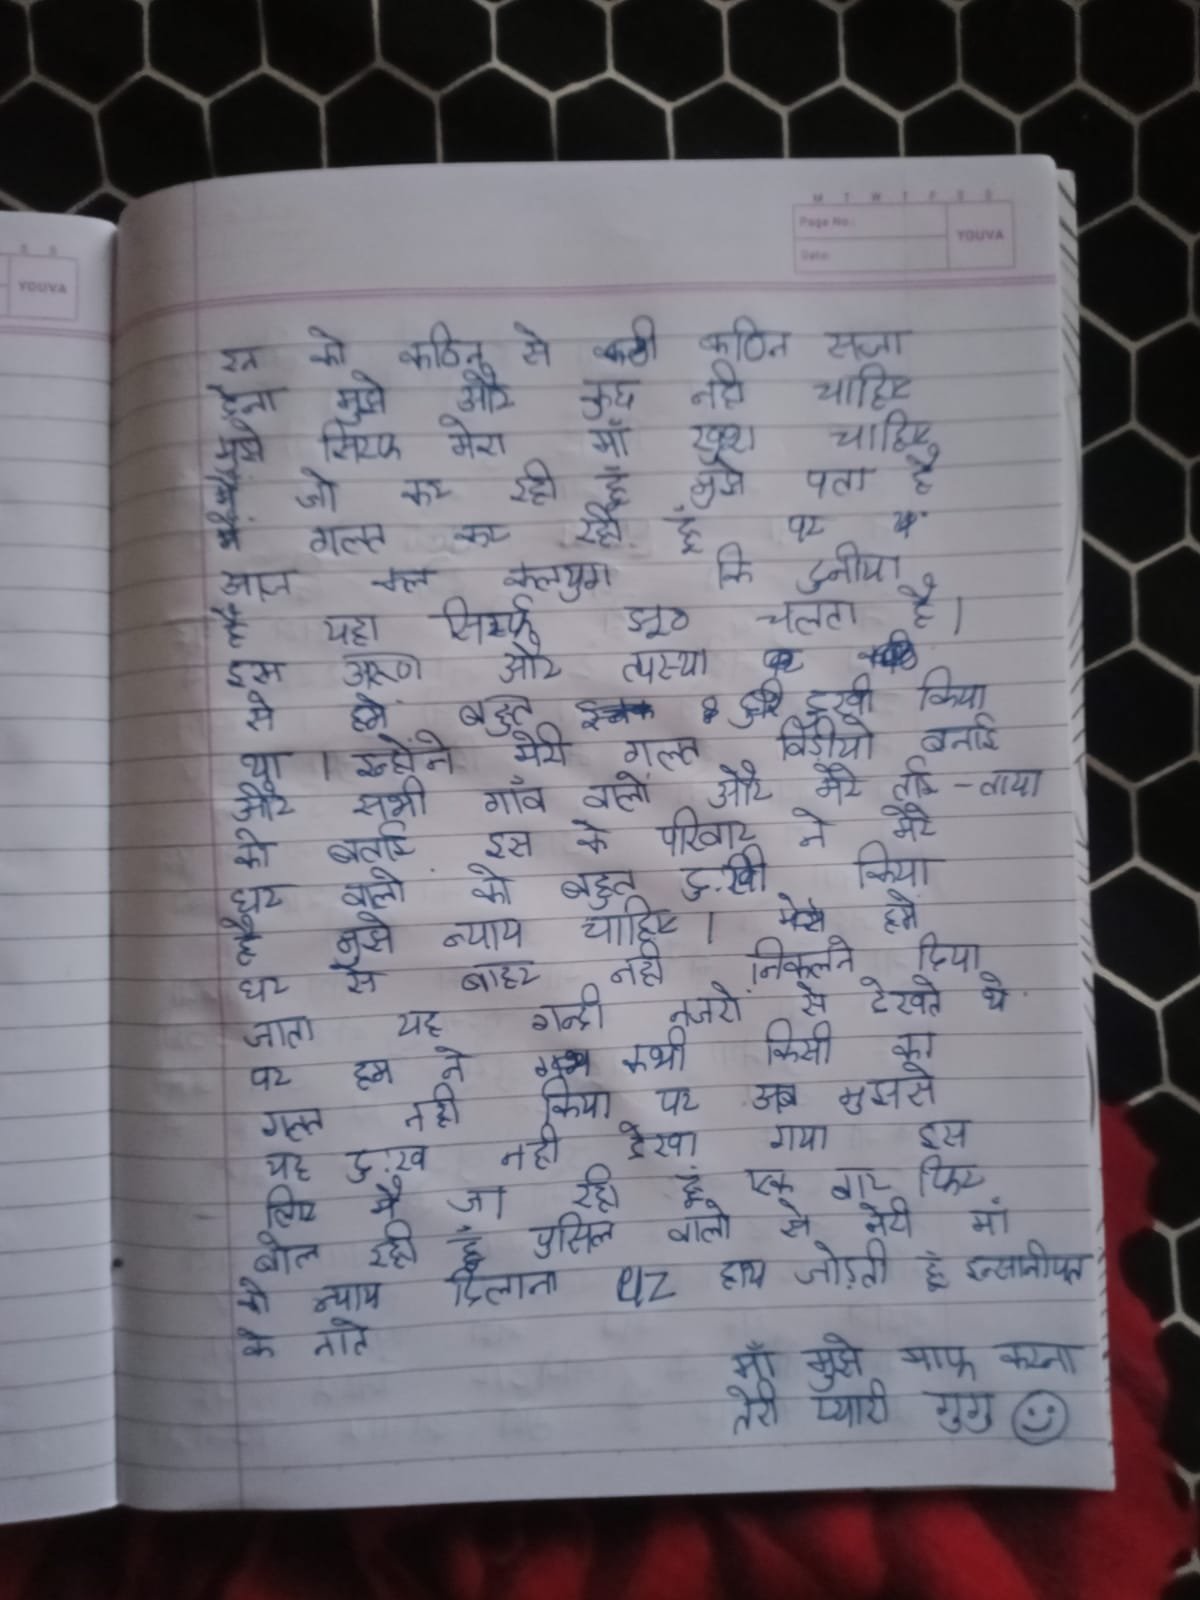 M T W T F S S
Page No.:
YOUVA
Date:
S S
YOUVA
इन को कठिन से कठी कठिन सजा
देना मुझे और कुछ नही चाहिए
मुझे सिरफ मेरा माँ खुश चाहिए
मैं जो कर रही हूँ मुझे पता है
मैं गलत कर रही हूं पर
आज कल कलयुग कि दुनीया
है यहा सिर्फ झूठ चलता है।
इस अरूण और त्पस्या
से हमें बहुत दुखी किया
था। इन्होंने मेरी गलत विडीयो बनाई
और सभी गाँव वालो और मेरे ताई-ताया
को बताई इस के परिवार ने मेरे
घर वालो को बहुत दु:खी किया
है मुझे न्याय चाहिए। हमें
घर से बाहर नही निकलने दिया
जाता यह गन्दी नजरो से देखते थे
पर हम ने कभी किसी का
गलत नही किया पर अब मुझसे
यह दु:ख नही देखा गया इस
लिए मैं जा रही हूं एक बार फिर
बोल रही हूं पुसिल वालो से मेरी मां
को न्याय दिलाना PLZ हाथ जोड़ती हूं इन्सानीयत
के नाते
माँ मुझे माफ करना
तेरी प्यारी गुगु